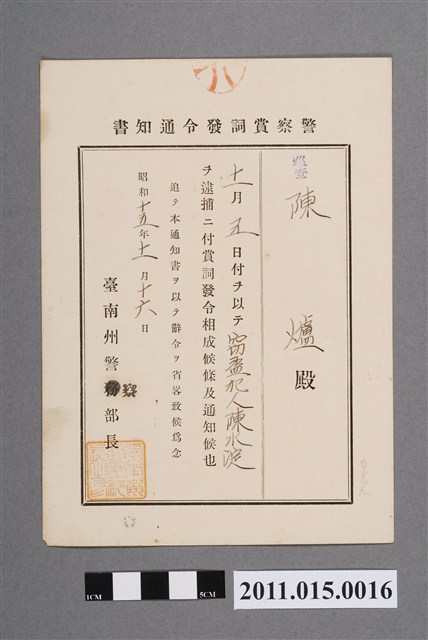 警察賞詞發令通知書
巡查
陳爐殿
十一月五日付ヲ以テ竊盜犯人陳水淀
ヲ逮捕ニ付賞詞發令相成候條及通知候也
追テ本通知書ヲ以テ辭令ヲ省畧致候爲念
昭和十五年十一月十六日
臺南州警察部長
1CM
5CM
2011.015.0016